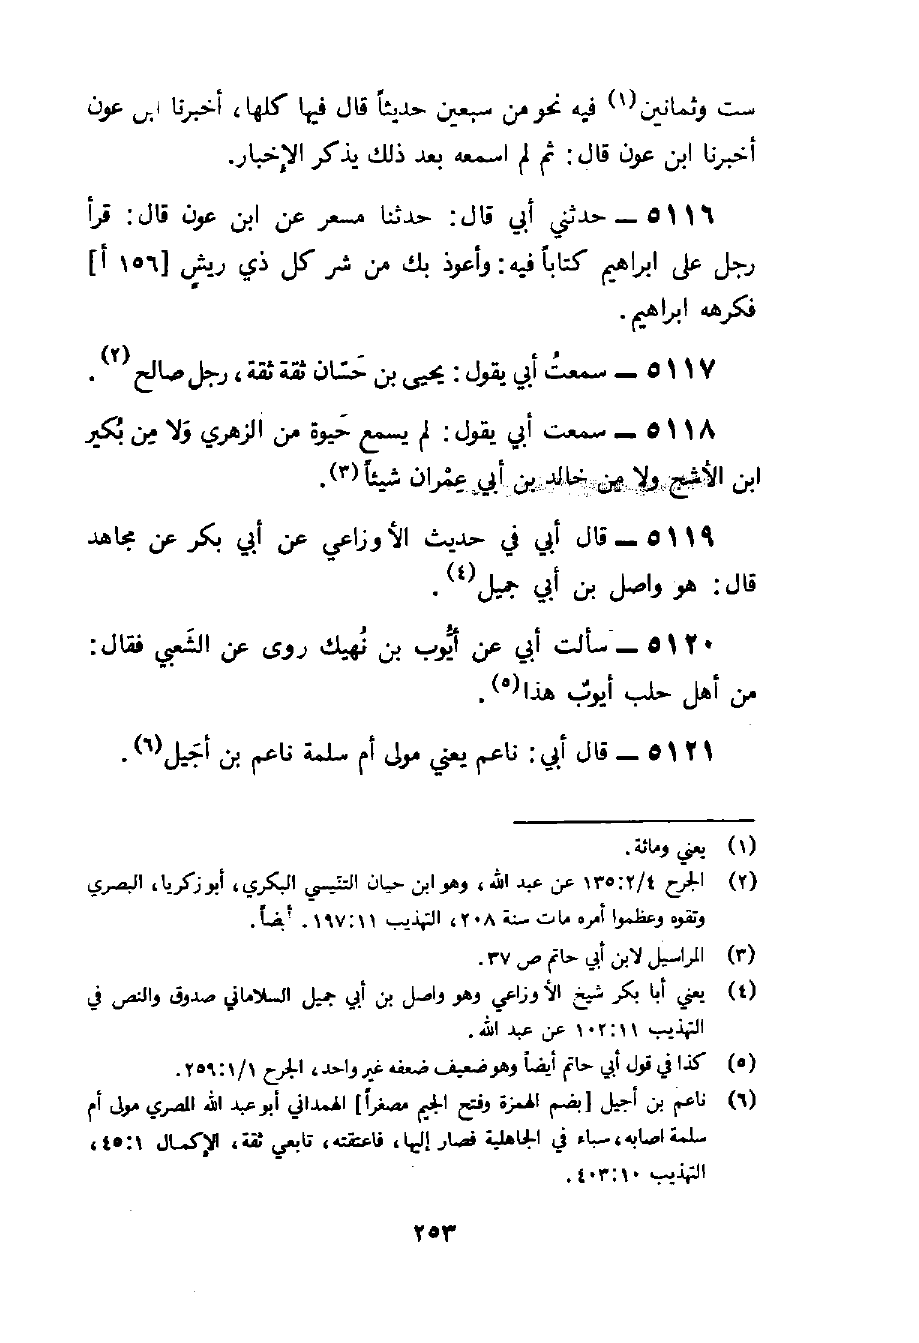 ست وثمانين(١) فيه نحو من سبعين حديثاً قال فيها كلها، أخبرنا ابن عون
أخبرنا ابن عون قال: ثم لم اسمعه بعد ذلك يذكر الإخبار.
٥١١٦ ــ حدثني أبي قال: حدثنا مسعر عن ابن عون قال: قرأ
رجل على ابراهيم كتاباً فيه: وأعوذ بك من شر كل ذي ريشٍ [١٥٦ أ]
فكرهه ابراهيم.
٥١١٧ ــ سمعتُ أبي يقول: يحيى بن حَسّان ثقة ثقة، رجل صالح(٢).
٥١١٨ ــ سمعت أبي يقول: لم يسمع حَيوة من الزهري وَلا مِن بُكير
ابن الأشج ولا مِن خالد بن أبي عِمْران شيئاً(٣).
٥١١٩ ــ قال أبي في حديث الأوزاعي عن أبي بكر عن مجاهد
قال: هو واصل بن أبي جميل(٤).
٥١٢٠ ــ سألت أبي عن أيُّوب بن نُهيك روى عن الشَعبي فقال:
من أهل حلب أيوبٌ هذا(٥).
٥١٢١ ــ قال أبي: ناعم يعني مولى أم سلمة ناعم بن أجَيل(٦).
(١) يعني ومائة.
(٢) الجرح ١٣٥:٢/٤ عن عبد الله، وهو ابن حيان التنّيسي البكري، أبو زكريا، البصري
وثقوه وعظموا أمره مات سنة ٢٠٨، التهذيب ١٩٧:١١. أيضاً.
(٣) المراسيل لابن أبي حاتم ص ٣٧.
(٤) يعني أبا بكر شيخ الأوزاعي وهو واصل بن أبي جميل السلاماني صدوق والنص في
التهذيب ١٠٢:١١ عن عبد الله.
(٥) كذا في قول أبي حاتم أيضاً وهو ضعيف ضعفه غير واحد، الجرح ٢٥٩:١/١.
(٦) ناعم بن أجيل [بضم الهمزة وفتح الجيم مصغراً] الهمداني أبو عبد الله المصري مولى أم
سلمة اصابه، سباء في الجاهلية فصار إليها، فاعتقته، تابعي ثقة، الإكمال ٤٥:١،
التهذيب ٤٠٣:١٠.
٢٥٣